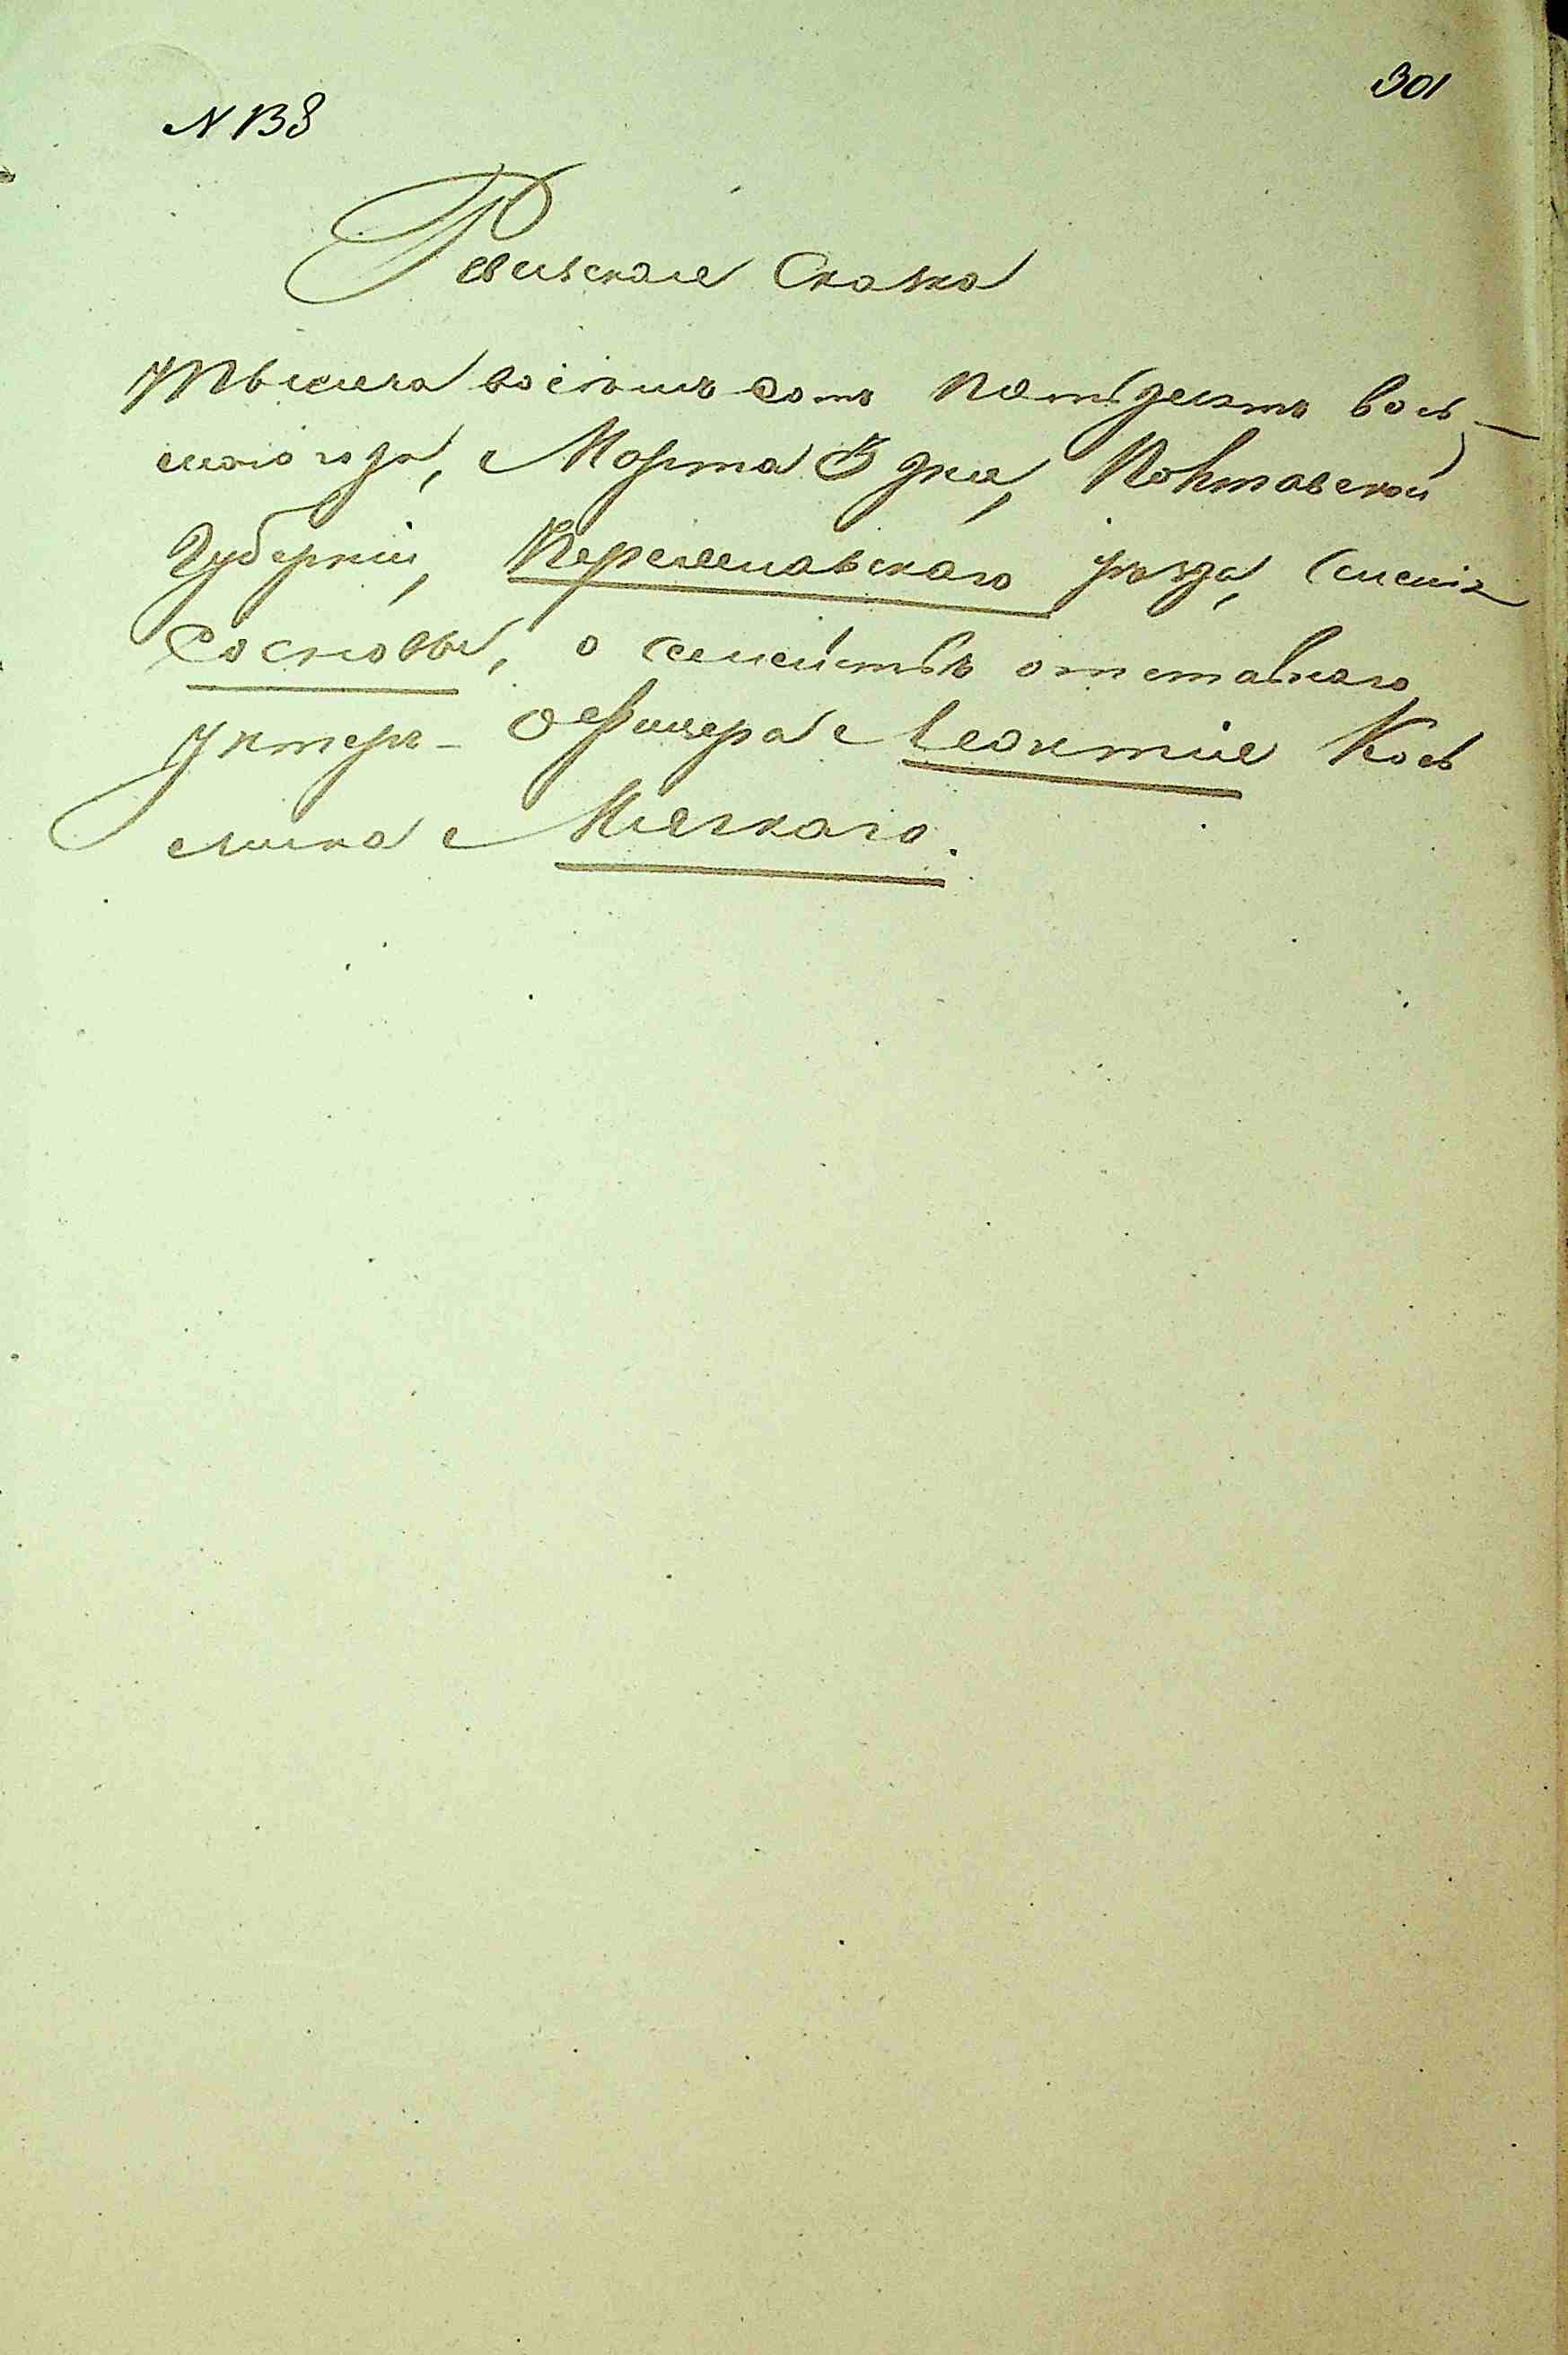 301
N 138
Ревизская Сказка
Тысяча восемь сотъ пятьдесятъ вось-
маго года, Марта 3 дня, Полтавской
Губерніи, Переяславскаго уѣзда,
Сосновы, о семействѣ отставнаго
Унтеръ-Офицера Леонтія Кось
мина Мягкаго.